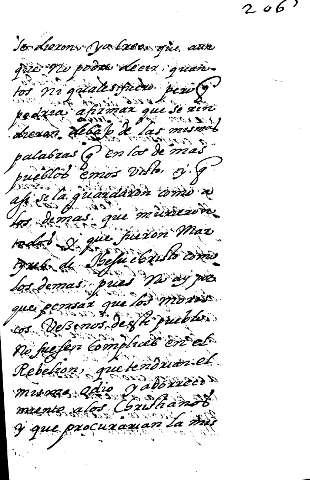 206
se dieron ya creo que aun
que no podre decir quan
tos ni quales fuero pero q
podria afirmar que se rin
dieron debajo de las mismas
palabras q en los demas
pueblos emos visto. y q
assi se la guardaron como a
los demas. que murieron
todos y que fueron Mar
de Jhesuchristo como
los demas. pues No ay por
que pensar que los moris
cos Vezinos deste pueblo
no fuesen complices en el
Rebelion, que tendrian el
mismo odio y aborreci
miento a los Christianos
y que procurarian la mis